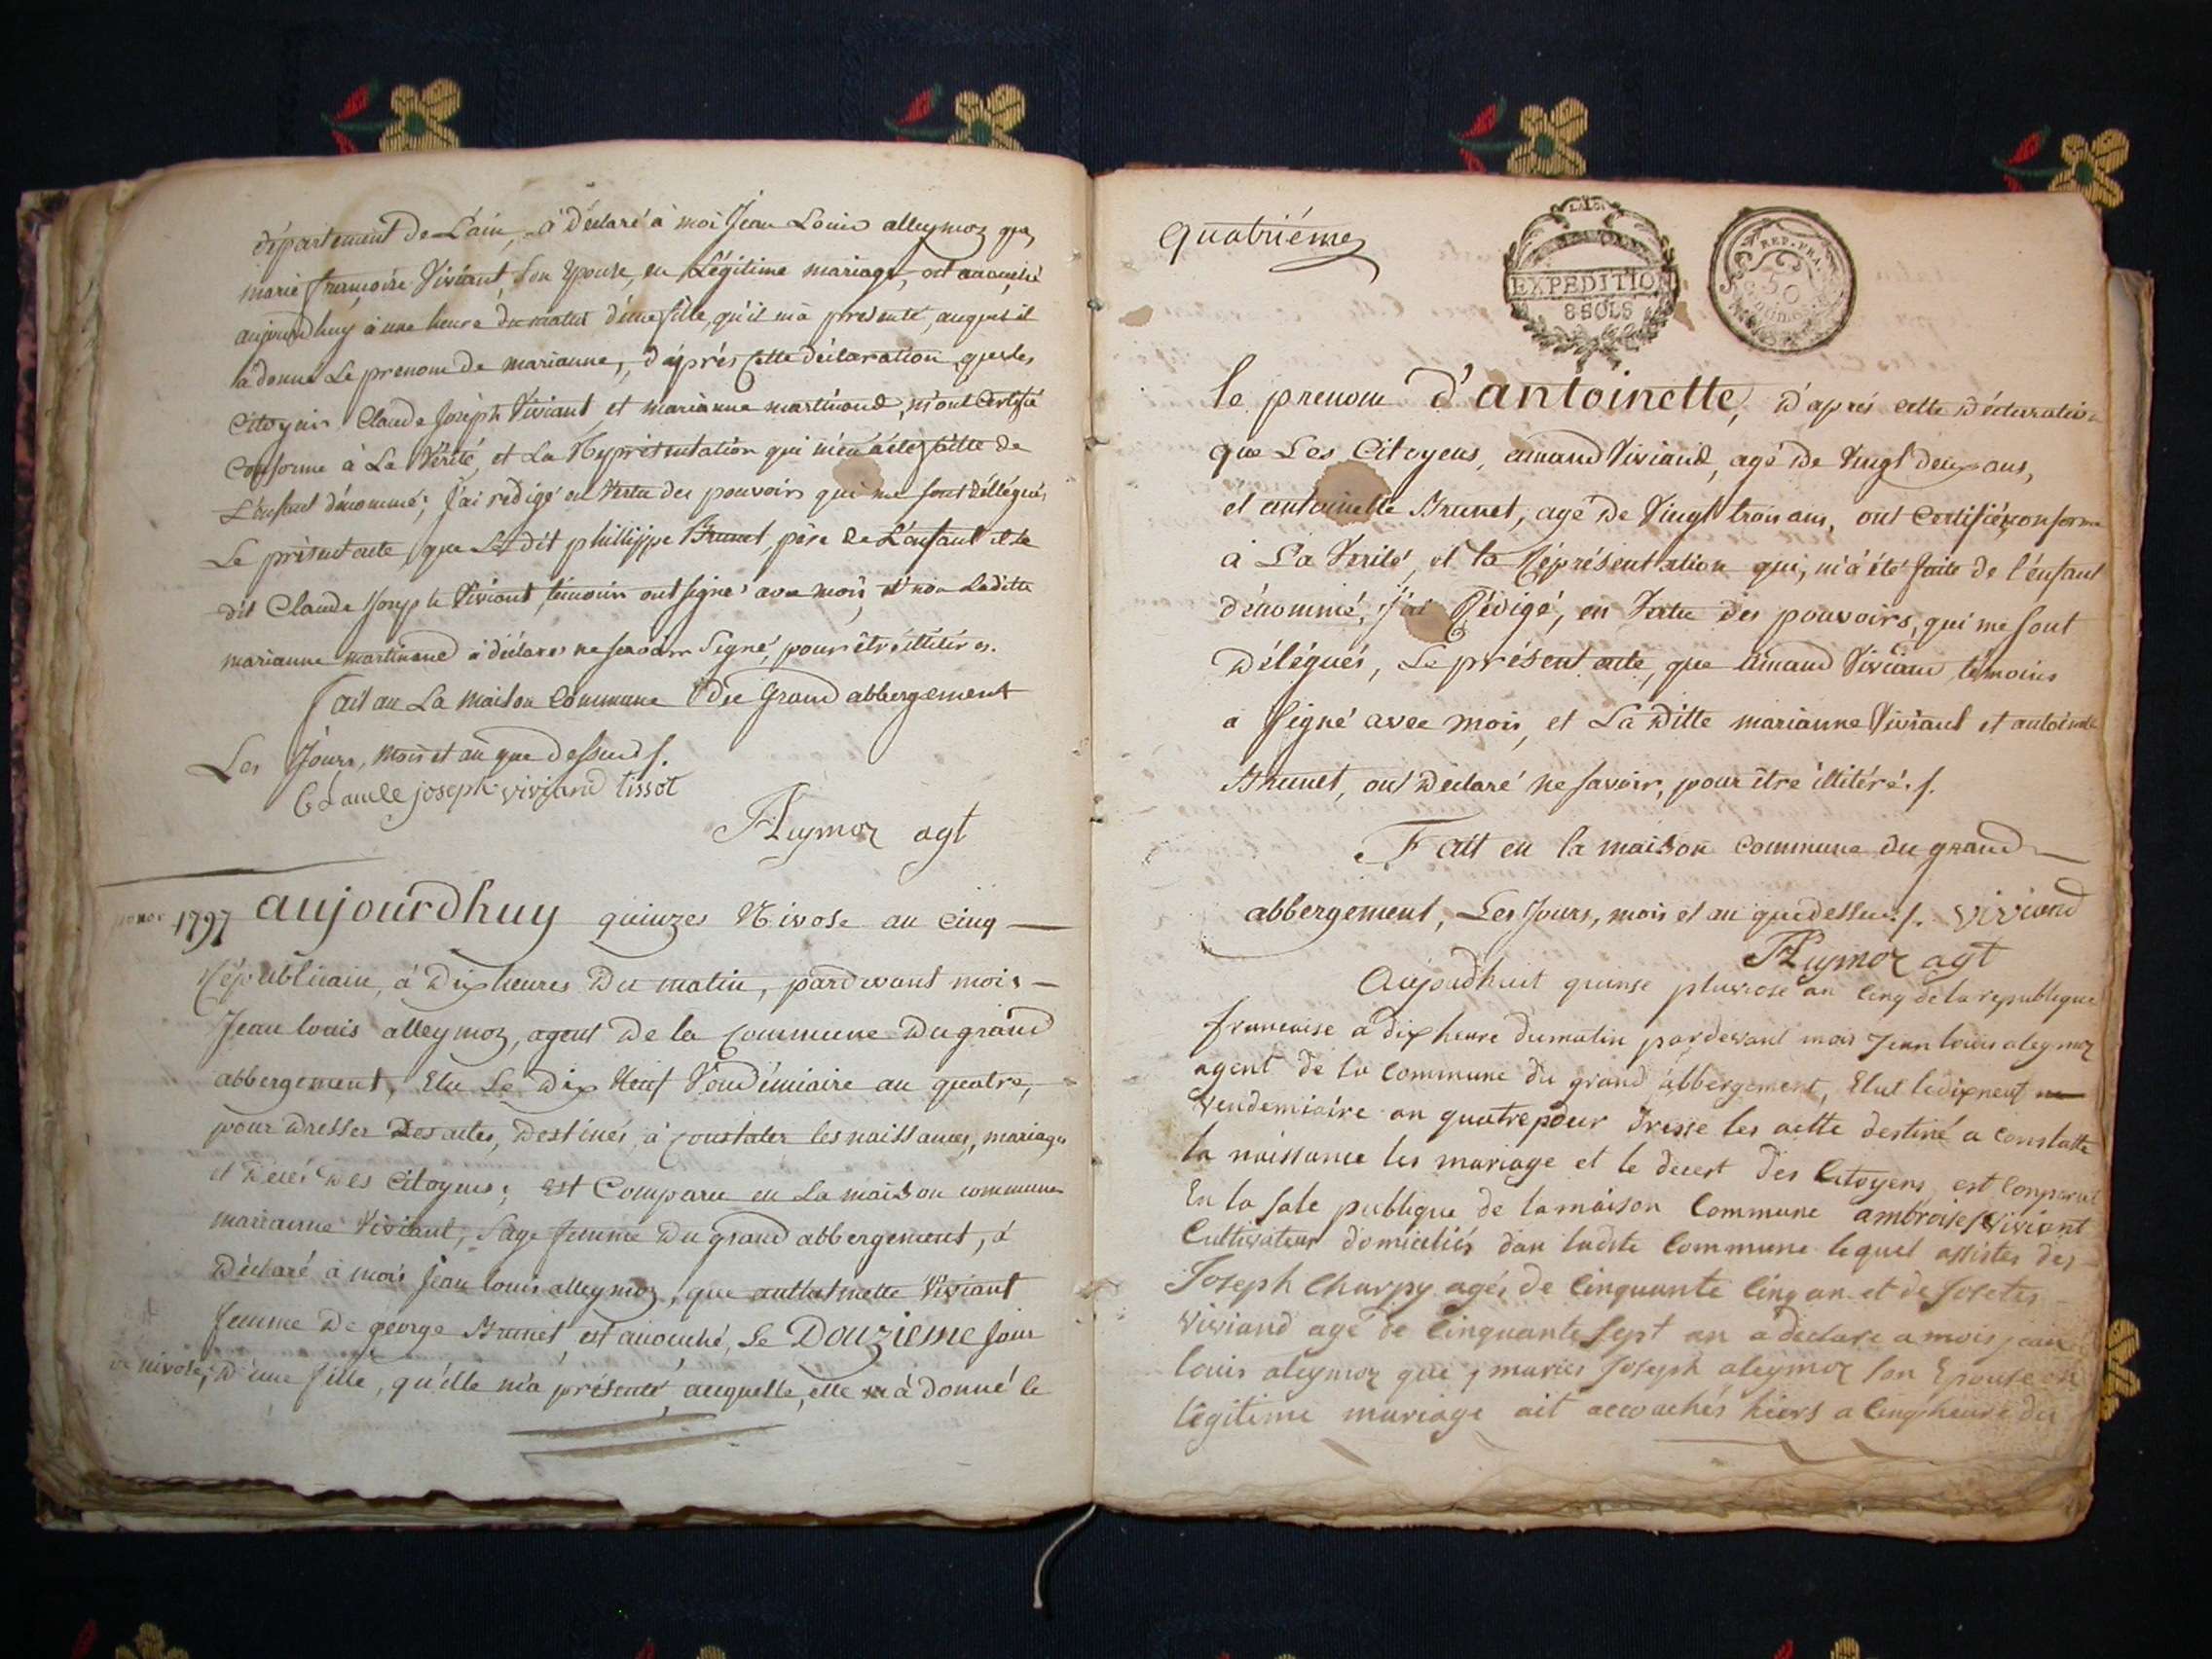 département de L'ain, à Déclaré à moi Jean Louis alleymoz que
marie françoise Viviant, Son Epouse, en Légitime mariage, est accouché
aujourdhuy à une heure du matin d'une fille, qu'il m'à presenté, auquel il
à donné Le prenom de marianne, d'après Cette déclaration que les
Citoyens Claude Joseph Viviant et marianne martinand, m'ont Certifié
Conforme à La Vérité, et La Représentation qui m'en à été faitte de
L'enfant dénommé; J'ai redigé en Vertu des pouvoirs qui me sont Délégués
Le présent acte, que Ledit phillippe Brunet, père de L'enfant et le
dit Claude Joseph Viviant, témoin ont signé avec mois, et non Laditte
marianne martinand à déclaré ne savoir Signé, pour être illitéres.
fait en La maison Commune du Grand abbergement
Les Jours, mois et an que Dessus /.
Claude joseph viviand tissot
Aleymoz agt
1797 aujourdhuy quinzes Nivose an Cinq
Républicain, à Dix heures Du matin, pardevant mois
Jean louis alleymoz, agent De la Commune Du grand
abbergement, Elu Le Dix Neuf Vendémiaire an quatre,
pour Dresser Des actes, Destinés, à Constater les naissances, mariages
et Décés Des Citoyens; Est Comparu en La maison commune
marianne Viviant, Sage femme Du grand abbergement, à
Déclaré à mois Jean louis alleymoz, que anthoinette Viviant
femme De george Brunet, est accouché, Le Douzieme Jour
de nivose; D'une fille, qu'elle m'a présenté, auquelle, elle à donné le
quatriéme
EXPEDITIO
8 SOLS
REP. FRA.
50
le prenom d'antoinette, D'aprés cette Déclaration
que Les Citoyens, aimand Viviand, agé De Vingt deux ans,
et antoinette Brunet, agé De Vingt trois ans, ont Certifié, conforme
à La Verité, et la Réprésentation qui, m'à été faite de l'enfant
dénommé, j'ai Rédigé, en Vertu Des pouvoirs, qui me sont
Délégués, Le présent acte, que aimand Viviand témoins
à signé avec mois, et La Ditte marianne Viviant et antoinette
Brunet, ont Déclaré ne savoir, pour être illitéré. /.
Fait en la maison Commune du grand
abbergement, Les Jours, mois et an que dessus. /. viviand
Aleymoz agt
Aujoudhuit quinse pluviose an Cinq de la republique
francaise a dix heure du matin pardevant mois Jean louis aleymoz
agent de la Commune du grand abbergement, Elut le dix neuf
Vendemiaire an quatre pour Dresse les actte destiné a Constatte
la naissance les mariage et le decest des Citoyens est Comparut
En la sale publique de la maison Commune ambroise Viviant
Cultivateur domiciliés dan ladite Commune lequel assistes des
Joseph Charpy agés de Cinquante Cinq an et de
Viviand agé de Cinquante Sept an a declare a mois jean
louis aleymoz que, maries Joseph aleymoz Son Epouse en
légitime mariage ait accouchés hiers a Cinq heure du